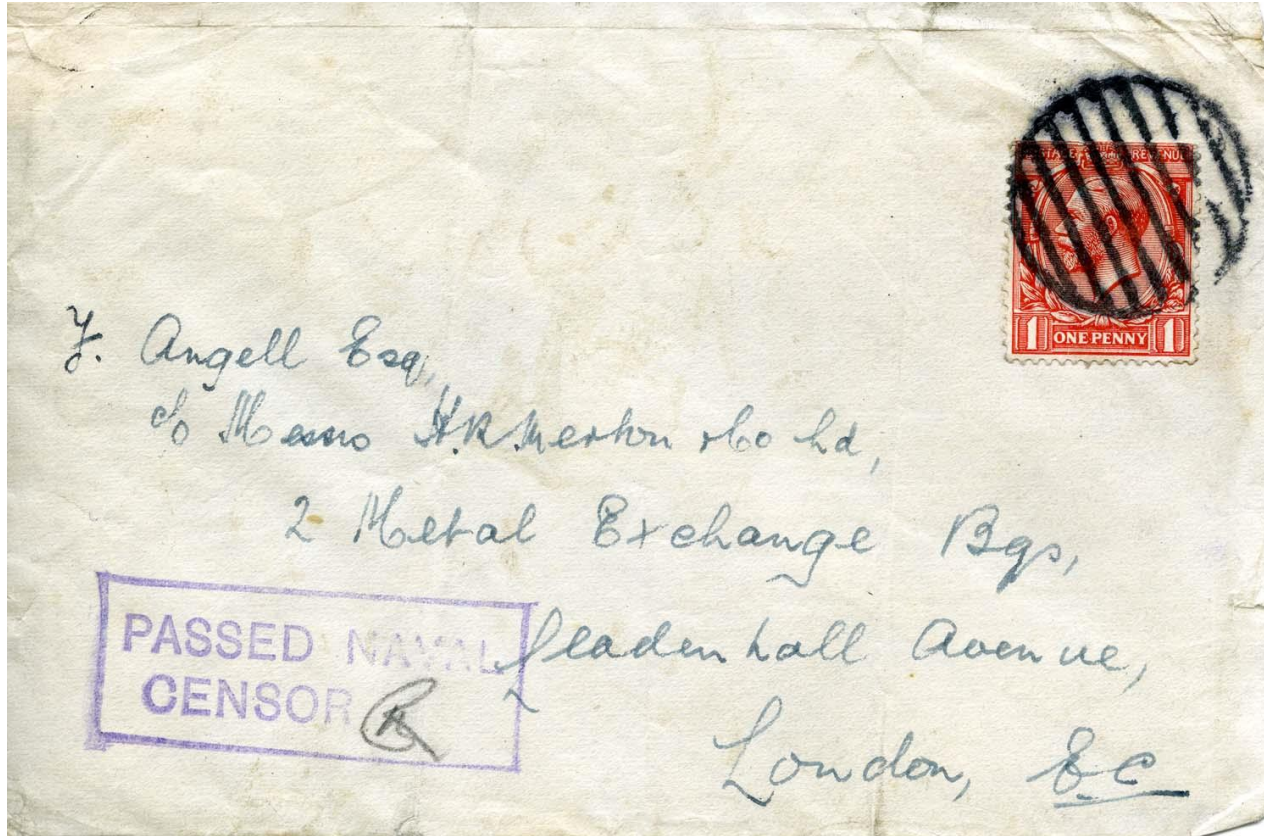 POSTAGE REVENUE
1 ONE PENNY 1
F. Angell Esq,
c/o Messrs H.R. Merton & Co Ld,
2 Metal Exchange Bgs,
Leadenhall Avenue,
London, E.C
PASSED NAVAL
CENSOR